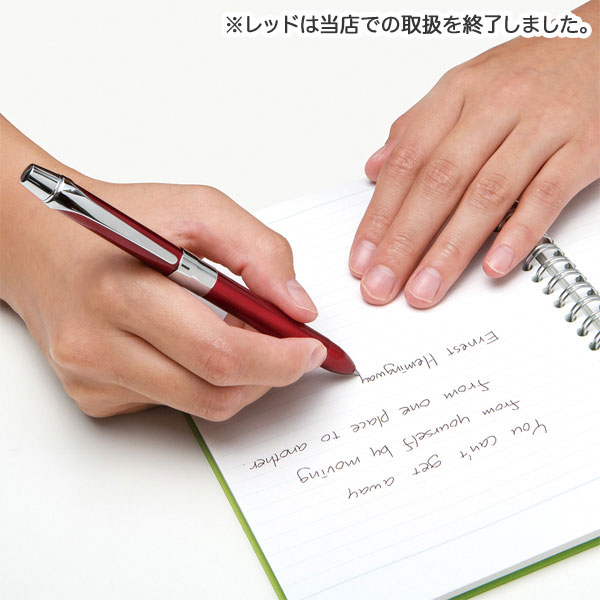 ※レッドは当店での取扱を終了しました。
You can't get away
from yourself by moving
from one place to another.
Ernest Hemingway